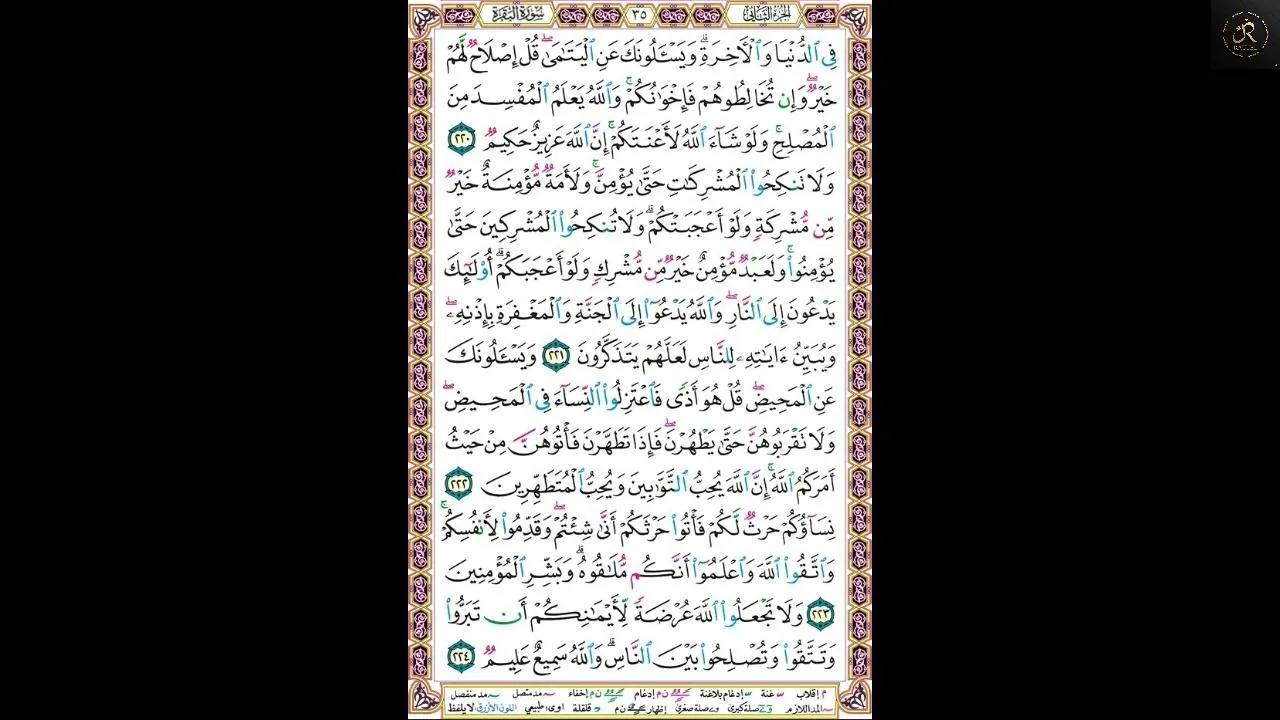 الجزء الثاني ٣٥ سورة البقرة
فِى ٱلدُّنْيَا وَٱلْـَٔاخِرَةِ ۗ وَيَسْـَٔلُونَكَ عَنِ ٱلْيَتَـٰمَىٰ ۖ قُلْ إِصْلَاحٌ لَّهُمْ
خَيْرٌ ۖ وَإِن تُخَالِطُوهُمْ فَإِخْوَٰنُكُمْ ۚ وَٱللَّهُ يَعْلَمُ ٱلْمُفْسِدَ مِنَ
ٱلْمُصْلِحِ ۚ وَلَوْ شَآءَ ٱللَّهُ لَأَعْنَتَكُمْ ۚ إِنَّ ٱللَّهَ عَزِيزٌ حَكِيمٌ ٢٢٠
وَلَا تَنكِحُوا۟ ٱلْمُشْرِكَـٰتِ حَتَّىٰ يُؤْمِنَّ ۚ وَلَأَمَةٌ مُّؤْمِنَةٌ خَيْرٌ
مِّن مُّشْرِكَةٍ وَلَوْ أَعْجَبَتْكُمْ ۗ وَلَا تُنكِحُوا۟ ٱلْمُشْرِكِينَ حَتَّىٰ
يُؤْمِنُوا۟ ۚ وَلَعَبْدٌ مُّؤْمِنٌ خَيْرٌ مِّن مُّشْرِكٍ وَلَوْ أَعْجَبَكُمْ ۗ أُو۟لَـٰٓئِكَ
يَدْعُونَ إِلَى ٱلنَّارِ ۖ وَٱللَّهُ يَدْعُوٓا۟ إِلَى ٱلْجَنَّةِ وَٱلْمَغْفِرَةِ بِإِذْنِهِۦ ۖ
وَيُبَيِّنُ ءَايَـٰتِهِۦ لِلنَّاسِ لَعَلَّهُمْ يَتَذَكَّرُونَ ٢٢١ وَيَسْـَٔلُونَكَ
عَنِ ٱلْمَحِيضِ ۖ قُلْ هُوَ أَذًى فَٱعْتَزِلُوا۟ ٱلنِّسَآءَ فِى ٱلْمَحِيضِ ۖ
وَلَا تَقْرَبُوهُنَّ حَتَّىٰ يَطْهُرْنَ ۖ فَإِذَا تَطَهَّرْنَ فَأْتُوهُنَّ مِنْ حَيْثُ
أَمَرَكُمُ ٱللَّهُ ۚ إِنَّ ٱللَّهَ يُحِبُّ ٱلتَّوَّٰبِينَ وَيُحِبُّ ٱلْمُتَطَهِّرِينَ ٢٢٢
نِسَآؤُكُمْ حَرْثٌ لَّكُمْ فَأْتُوا۟ حَرْثَكُمْ أَنَّىٰ شِئْتُمْ ۖ وَقَدِّمُوا۟ لِأَنفُسِكُمْ ۚ
وَٱتَّقُوا۟ ٱللَّهَ وَٱعْلَمُوٓا۟ أَنَّكُم مُّلَـٰقُوهُ ۗ وَبَشِّرِ ٱلْمُؤْمِنِينَ
٢٢٣ وَلَا تَجْعَلُوا۟ ٱللَّهَ عُرْضَةً لِّأَيْمَـٰنِكُمْ أَن تَبَرُّوا۟
وَتَتَّقُوا۟ وَتُصْلِحُوا۟ بَيْنَ ٱلنَّاسِ ۗ وَٱللَّهُ سَمِيعٌ عَلِيمٌ ٢٢٤
م إقلاب غنة إدغام بلاغنة ن م إدغام ن م إخفاء مد متصل مد منفصل
المد اللازم صلة كبرى صلة صغرى إظهار ن م قلقلة اوى طبيعي اللون الأزرق لا يلفظ